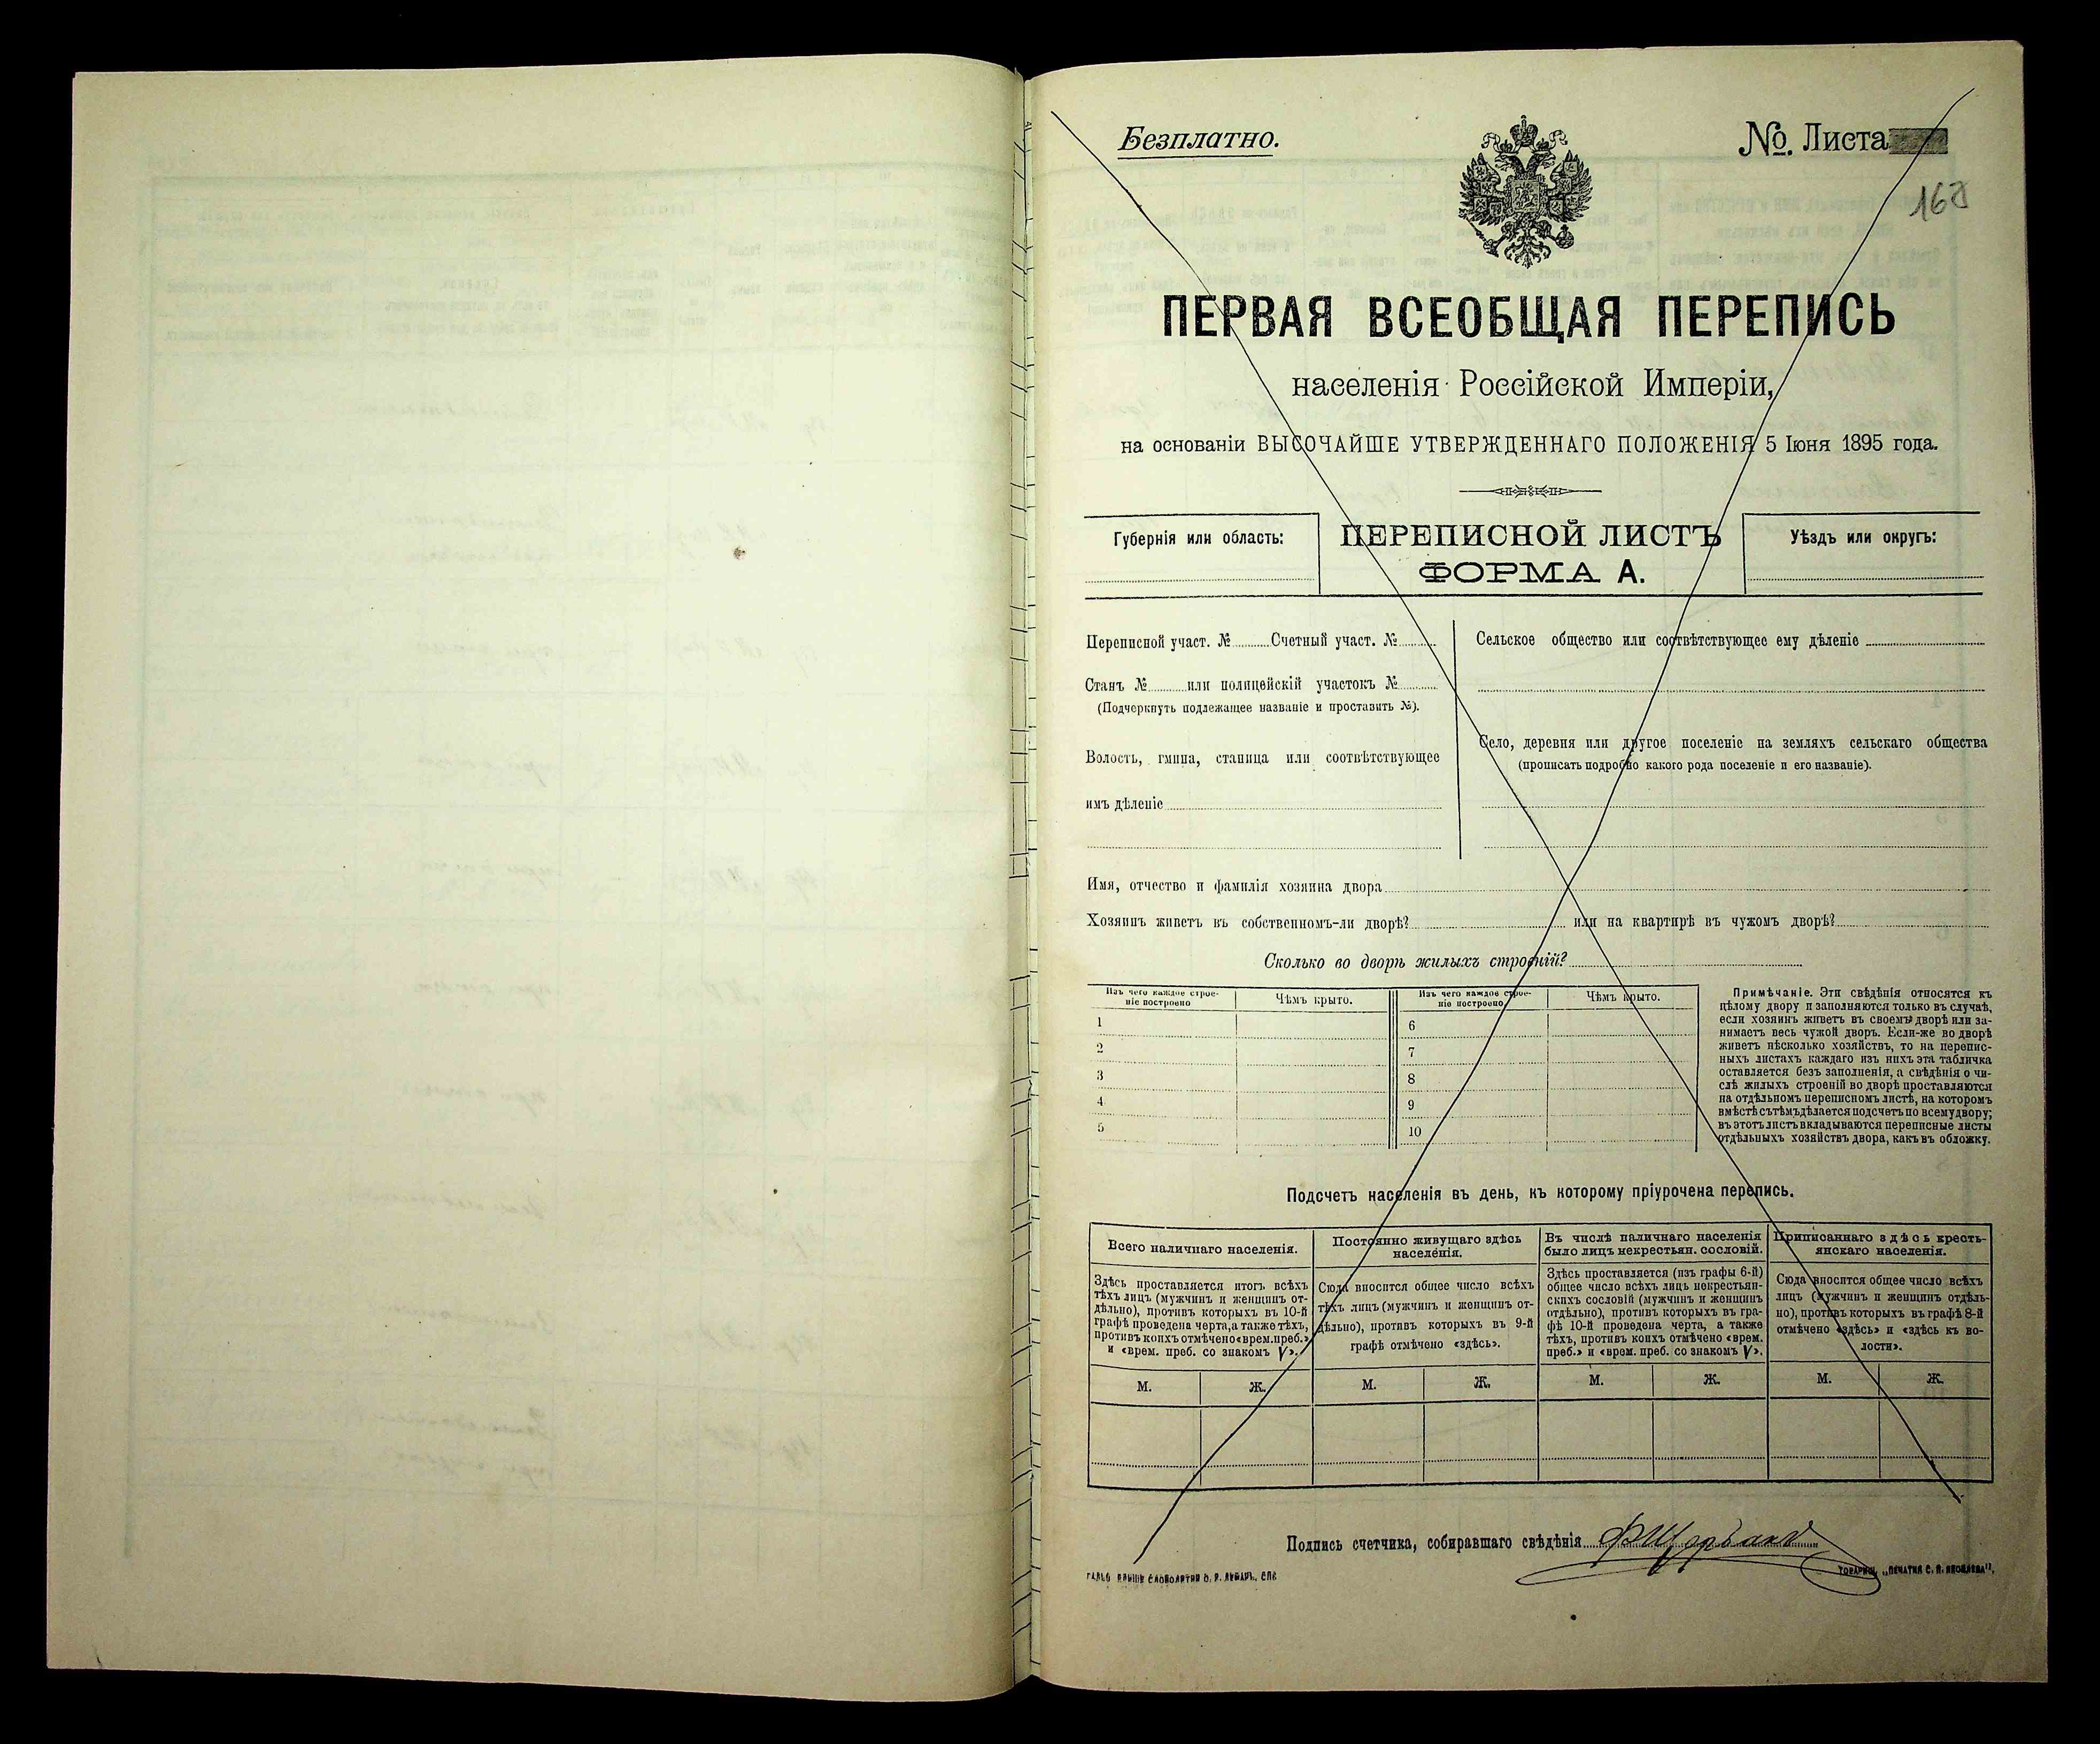 Безплатно.
№. Листа
ПЕРВАЯ ВСЕОБЩАЯ ПЕРЕПИСЬ
населенія Россійской Имперіи,
на основаніи ВЫСОЧАЙШЕ УТВЕРЖДЕННАГО ПОЛОЖЕНІЯ 5 Іюня 1895 года.
Губернія или область:
ПЕРЕПИСНОЙ ЛИСТЪ
ФОРМА А.
Уѣздъ или округъ:
Переписной участ. № Счетный участ. №
Станъ № или полицейскій участокъ №
(Подчеркнуть подлежащее названіе и проставить №).
Волость, гмина, станица или соотвѣтствующее
имъ дѣленіе
Сельское общество или соотвѣтствующее ему дѣленіе
Село, деревня или другое поселеніе на земляхъ сельскаго общества
(прописать подробно какого рода поселеніе и его названіе).
Имя, отчество и фамилія хозяина двора
Хозяинъ живетъ въ собственномъ-ли дворѣ? или на квартирѣ въ чужомъ дворѣ?
Сколько во дворѣ жилыхъ строеній?
Изъ чего каждое строе-
ніе построено
Чѣмъ крыто.
Изъ чего каждое строе-
ніе построено
Чѣмъ крыто.
1
2
3
4
5
6
7
8
9
10
Примѣчаніе. Эти свѣдѣнія относятся къ
цѣлому двору и заполняются только въ случаѣ,
если хозяинъ живетъ въ своемъ дворѣ или за-
нимаетъ весь чужой дворъ. Если-же во дворѣ
живетъ нѣсколько хозяйствъ, то на перепис-
ныхъ листахъ каждаго изъ нихъ эта табличка
оставляется безъ заполненія, а свѣдѣнія о чи-
слѣ жилыхъ строеній во дворѣ проставляются
на отдѣльномъ переписномъ листѣ, на которомъ
вмѣстѣ съ тѣмъ дѣлается подсчетъ по всему двору;
въ этотъ листъ вкладываются переписные листы
отдѣльныхъ хозяйствъ двора, какъ въ обложку.
Подсчетъ населенія въ день, къ которому пріурочена перепись.
Всего наличнаго населенія.
Здѣсь проставляется итогъ всѣхъ
тѣхъ лицъ (мужчинъ и женщинъ от-
дѣльно), противъ которыхъ въ 10-й
графѣ проведена черта, а также тѣхъ,
противъ коихъ отмѣчено «врем. преб.»
и «врем. преб. со знакомъ V».
М. Ж.
Постоянно живущаго здѣсь
населенія.
Сюда вносится общее число всѣхъ
тѣхъ лицъ (мужчинъ и женщинъ от-
дѣльно), противъ которыхъ въ 9-й
графѣ отмѣчено «здѣсь».
М. Ж.
Въ числѣ наличнаго населенія
было лицъ некрестьян. сословій.
Здѣсь проставляется (изъ графы 6-й)
общее число всѣхъ лицъ некрестьян-
скихъ сословій (мужчинъ и женщинъ
отдѣльно), противъ которыхъ въ гра-
фѣ 10-й проведена черта, а также
тѣхъ, противъ коихъ отмѣчено «врем.
преб.» и «врем. преб. со знакомъ V».
М. Ж.
Приписаннаго здѣсь кресть-
янскаго населенія.
Сюда вносится общее число всѣхъ
лицъ (мужчинъ и женщинъ отдѣль-
но), противъ которыхъ въ графѣ 8-й
отмѣчено «здѣсь» и «здѣсь въ во-
лости».
М. Ж.
Подпись счетчика, собиравшаго свѣдѣнія